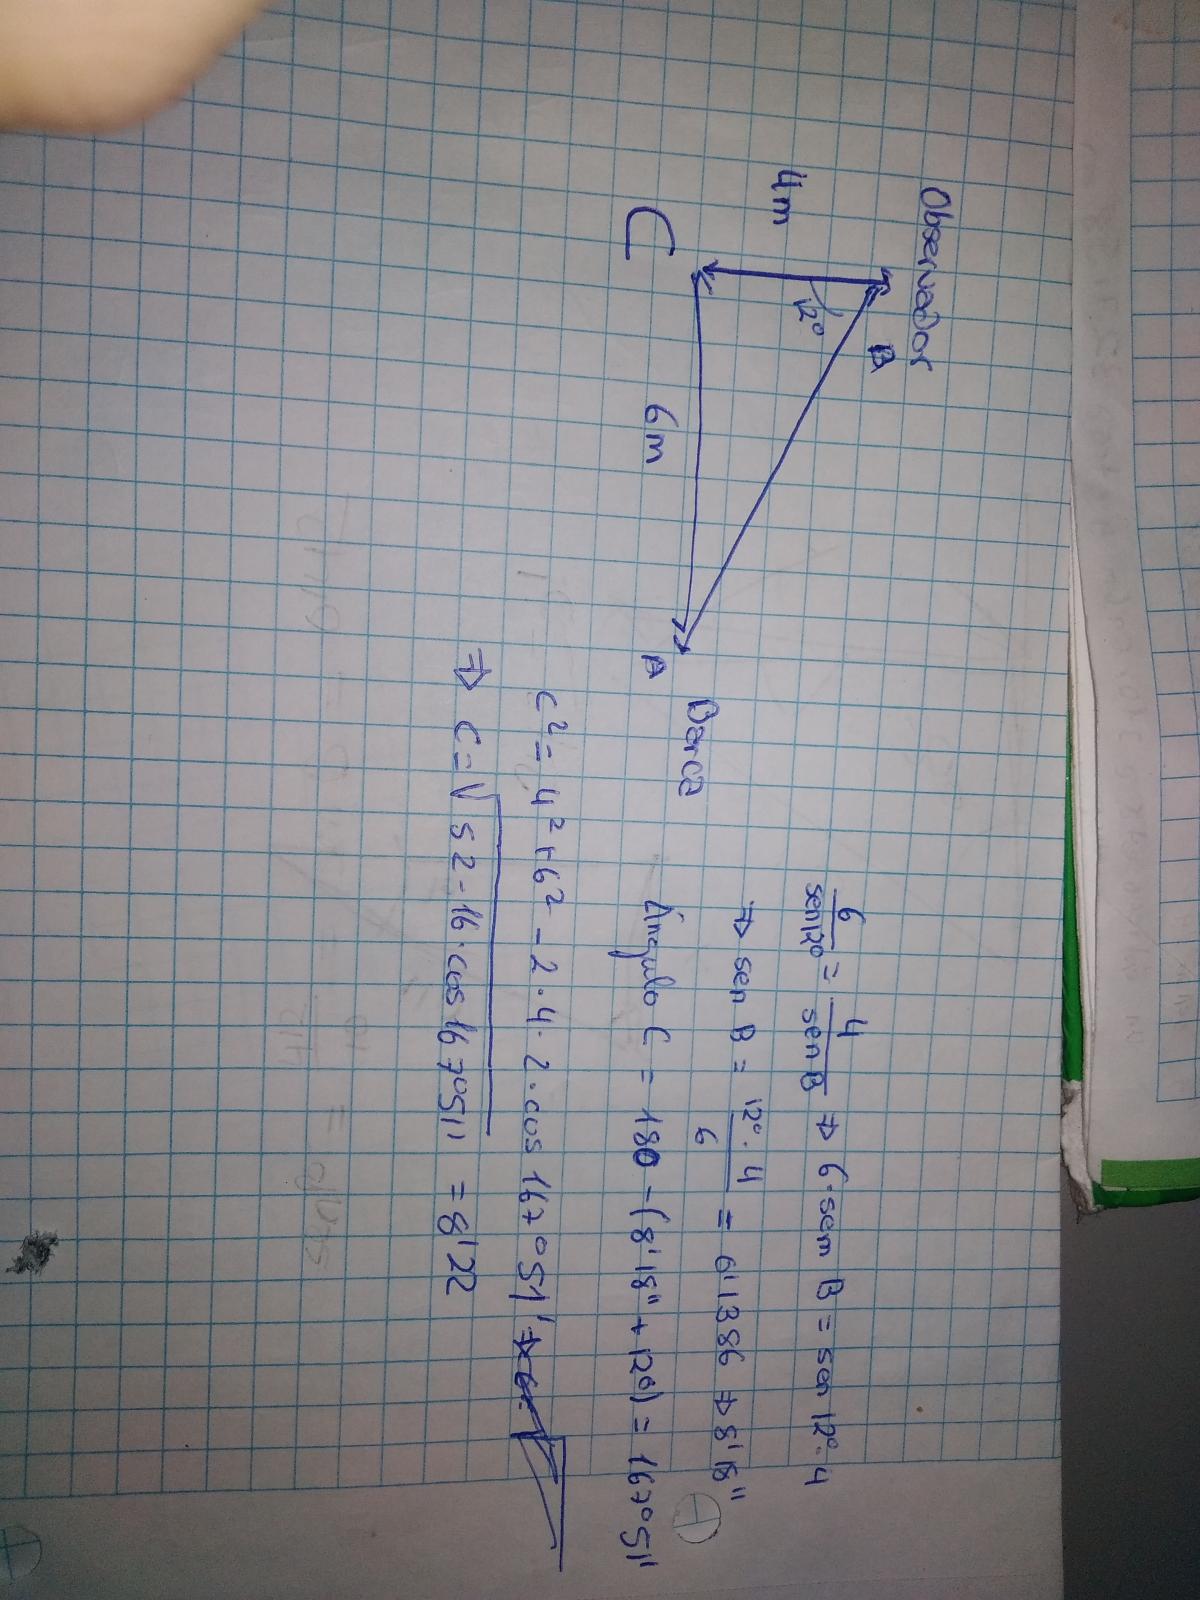 Observador
B
4m
12º
C
6m
A
Barca
6/sen12º = 4/sen B ⇒ 6·sem B = sen 12º·4
⇒ sen B = 12º·4/6 = 0'1386 ⇒ 8'18"
Ángulo C = 180 - (8'18" + 12º) = 167º51"
C² = 4² + 6² - 2·4·2·cos 167º51' ⇒
⇒ C = √52-16·cos 167º51" = 8'22